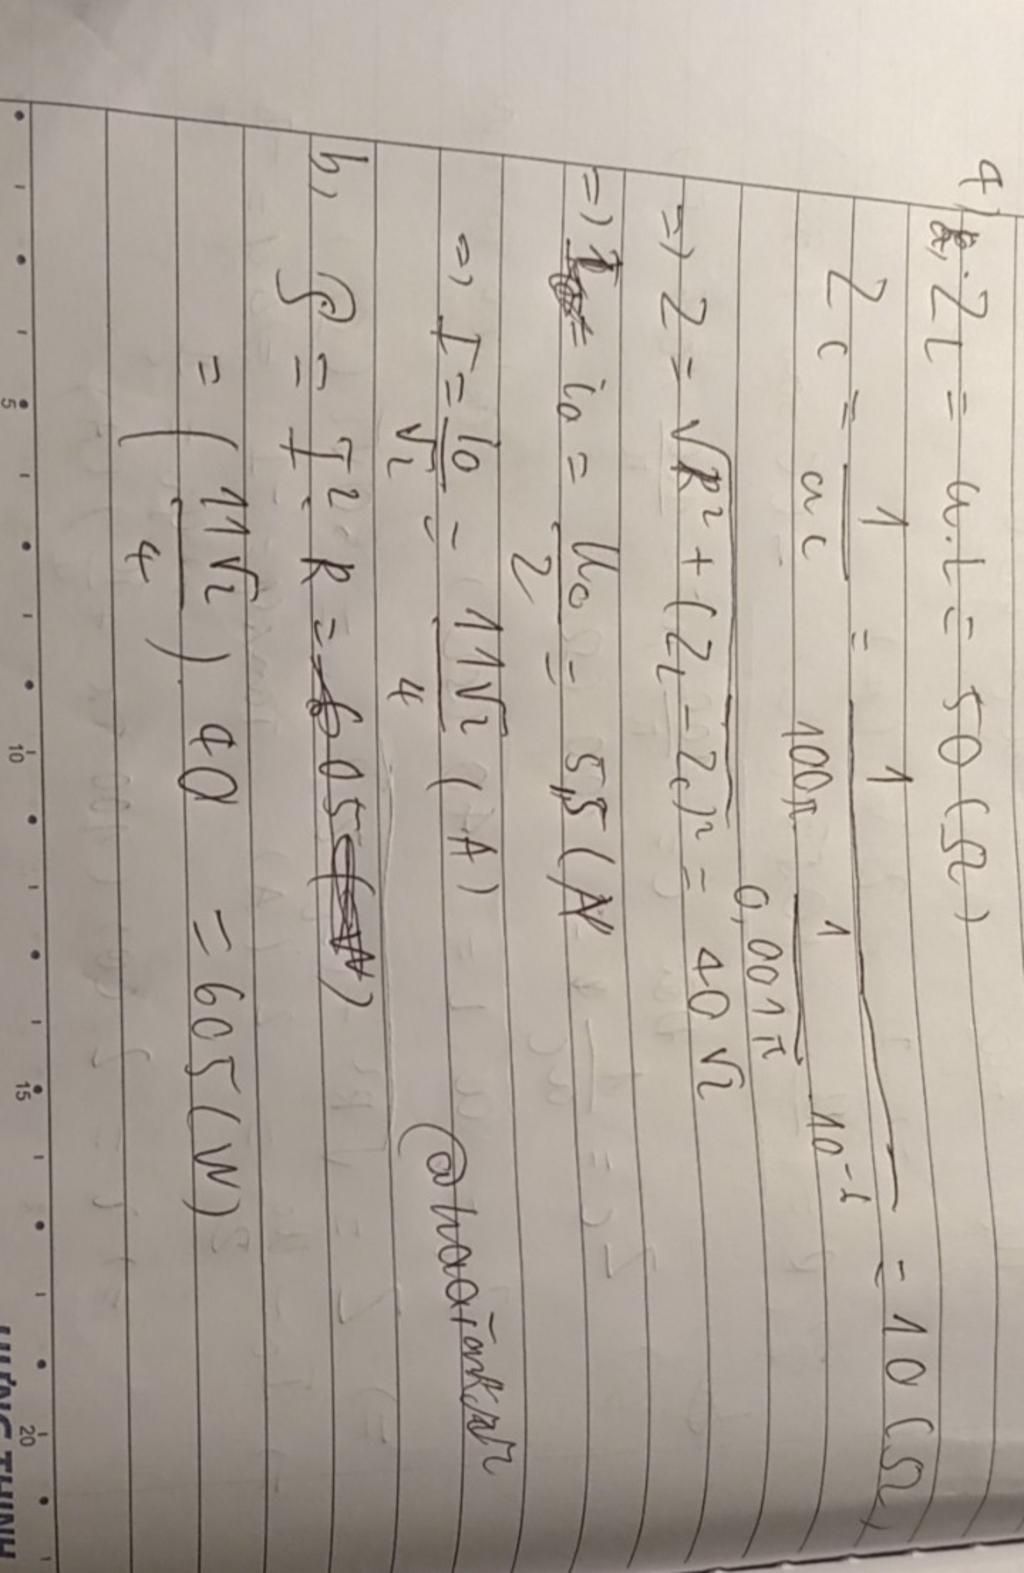 4) a, Z_L = ω.L = 50 (Ω)
Z_C = 1/ωC = 1/(100π 1/(0,001π) 10⁻⁶) = 10 (Ω)
=> Z = √(R² + (Z_L - Z_C)²) = 40√2
=> i₀ = U₀/Z = 5,5 (A
=> I = i₀/√2 = 11√2/4 (A)
b, P = I². R = 605
= (11√2/4) 40 = 605 (W)
5 10 15 20